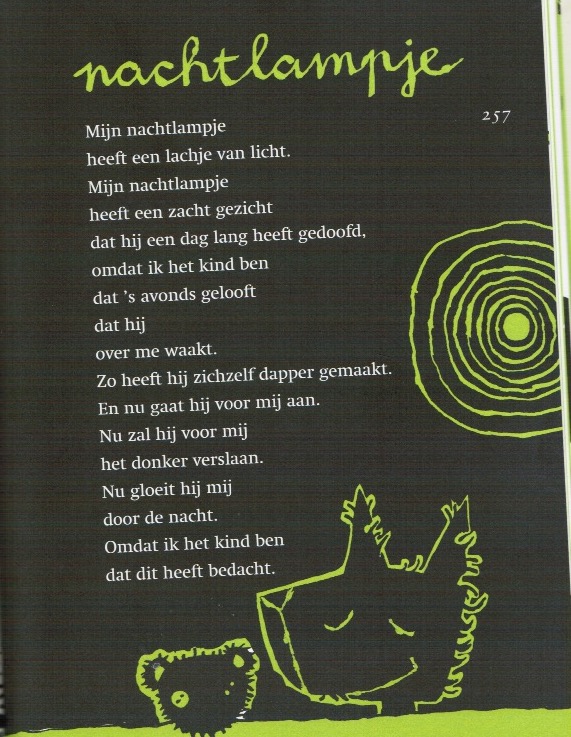 nachtlampje
257
Mijn nachtlampje
heeft een lachje van licht.
Mijn nachtlampje
heeft een zacht gezicht
dat hij een dag lang heeft gedoofd,
omdat ik het kind ben
dat 's avonds gelooft
dat hij
over me waakt.
Zo heeft hij zichzelf dapper gemaakt.
En nu gaat hij voor mij aan.
Nu zal hij voor mij
het donker verslaan.
Nu gloeit hij mij
door de nacht.
Omdat ik het kind ben
dat dit heeft bedacht.